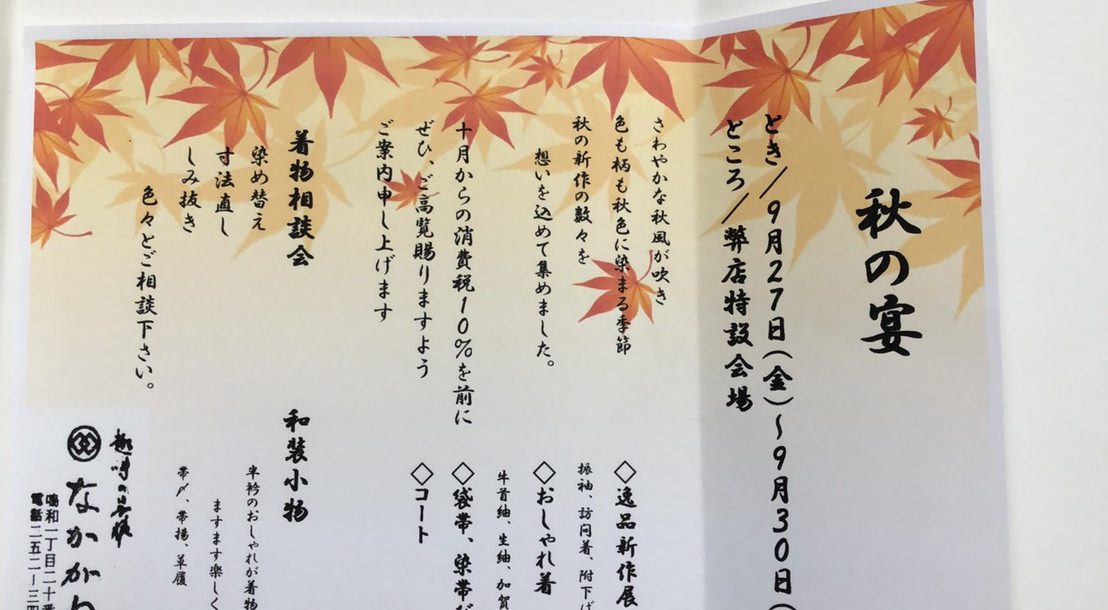 秋の宴
とき／9月27日（金）～9月30日（
ところ／弊店特設会場
さわやかな秋風が吹き
色も柄も秋色に染まる季節
秋の新作の数々を
想いを込めて集めました。
十月からの消費税10％を前に
ぜひ、ご高覧賜りますよう
ご案内申し上げます
◇逸品新作展
振袖、訪問着、附下げ
◇おしゃれ着
牛首紬、生紬、加賀
◇袋帯、染帯
◇コート
着物相談会
染め替え
寸法直し
しみ抜き
色々とご相談下さい。
和装小物
半衿のおしゃれが着物
ますます楽しく
帯〆、帯揚、草履
趣味の呉服
なかがわ
一丁目二十番
電話二五二ー三四